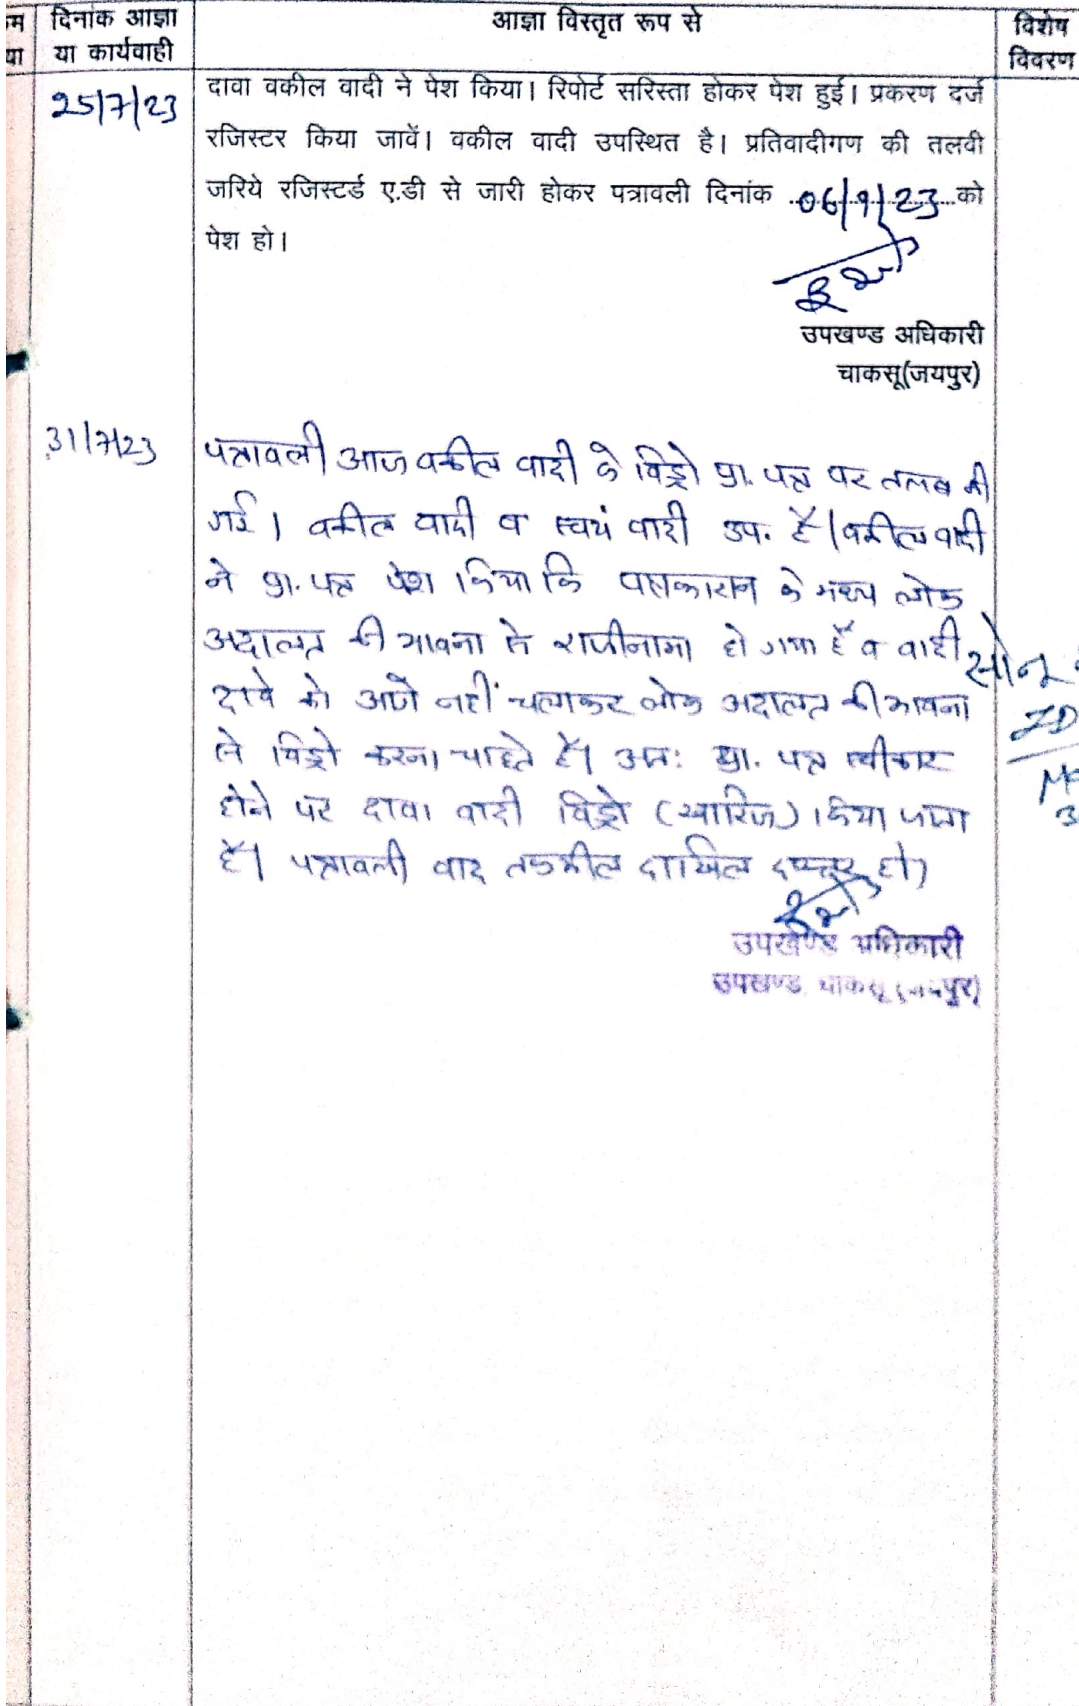 दिनांक आज्ञा
या कार्यवाही
आज्ञा विस्तृत रूप से
विशेष
विवरण
25/7/23
दावा वकील वादी ने पेश किया। रिपोर्ट सरिस्ता होकर पेश हुई। प्रकरण दर्ज
रजिस्टर किया जावें। वकील वादी उपस्थित है। प्रतिवादीगण की तलवी
जरिये रजिस्टर्ड ए.डी से जारी होकर पत्रावली दिनांक 06/9/23 को
पेश हो।
उपखण्ड अधिकारी
चाकसू(जयपुर)
31/7/23
पत्रावली आज वकील वादी के विड्रो प्रा. पत्र पर तलब की
गई। वकील वादी व स्वयं वादी उप. है। वकील वादी
ने प्रा. पत्र पेश किया कि पक्षकारान के मध्य लोक
अदालत की भावना से राजीनामा हो गया है व वादी
दावे को आगे नहीं चलाकर लोक अदालत की भावना
से विड्रो करना चाहते है। अतः प्रा. पत्र स्वीकार
होने पर दावा वादी विड्रो (खारिज) किया जाता
है। पत्रावली बाद तकमील दाखिल दफ्तर हो।
सोनू
उपखण्ड अधिकारी
उपखण्ड चाकसू (जयपुर)